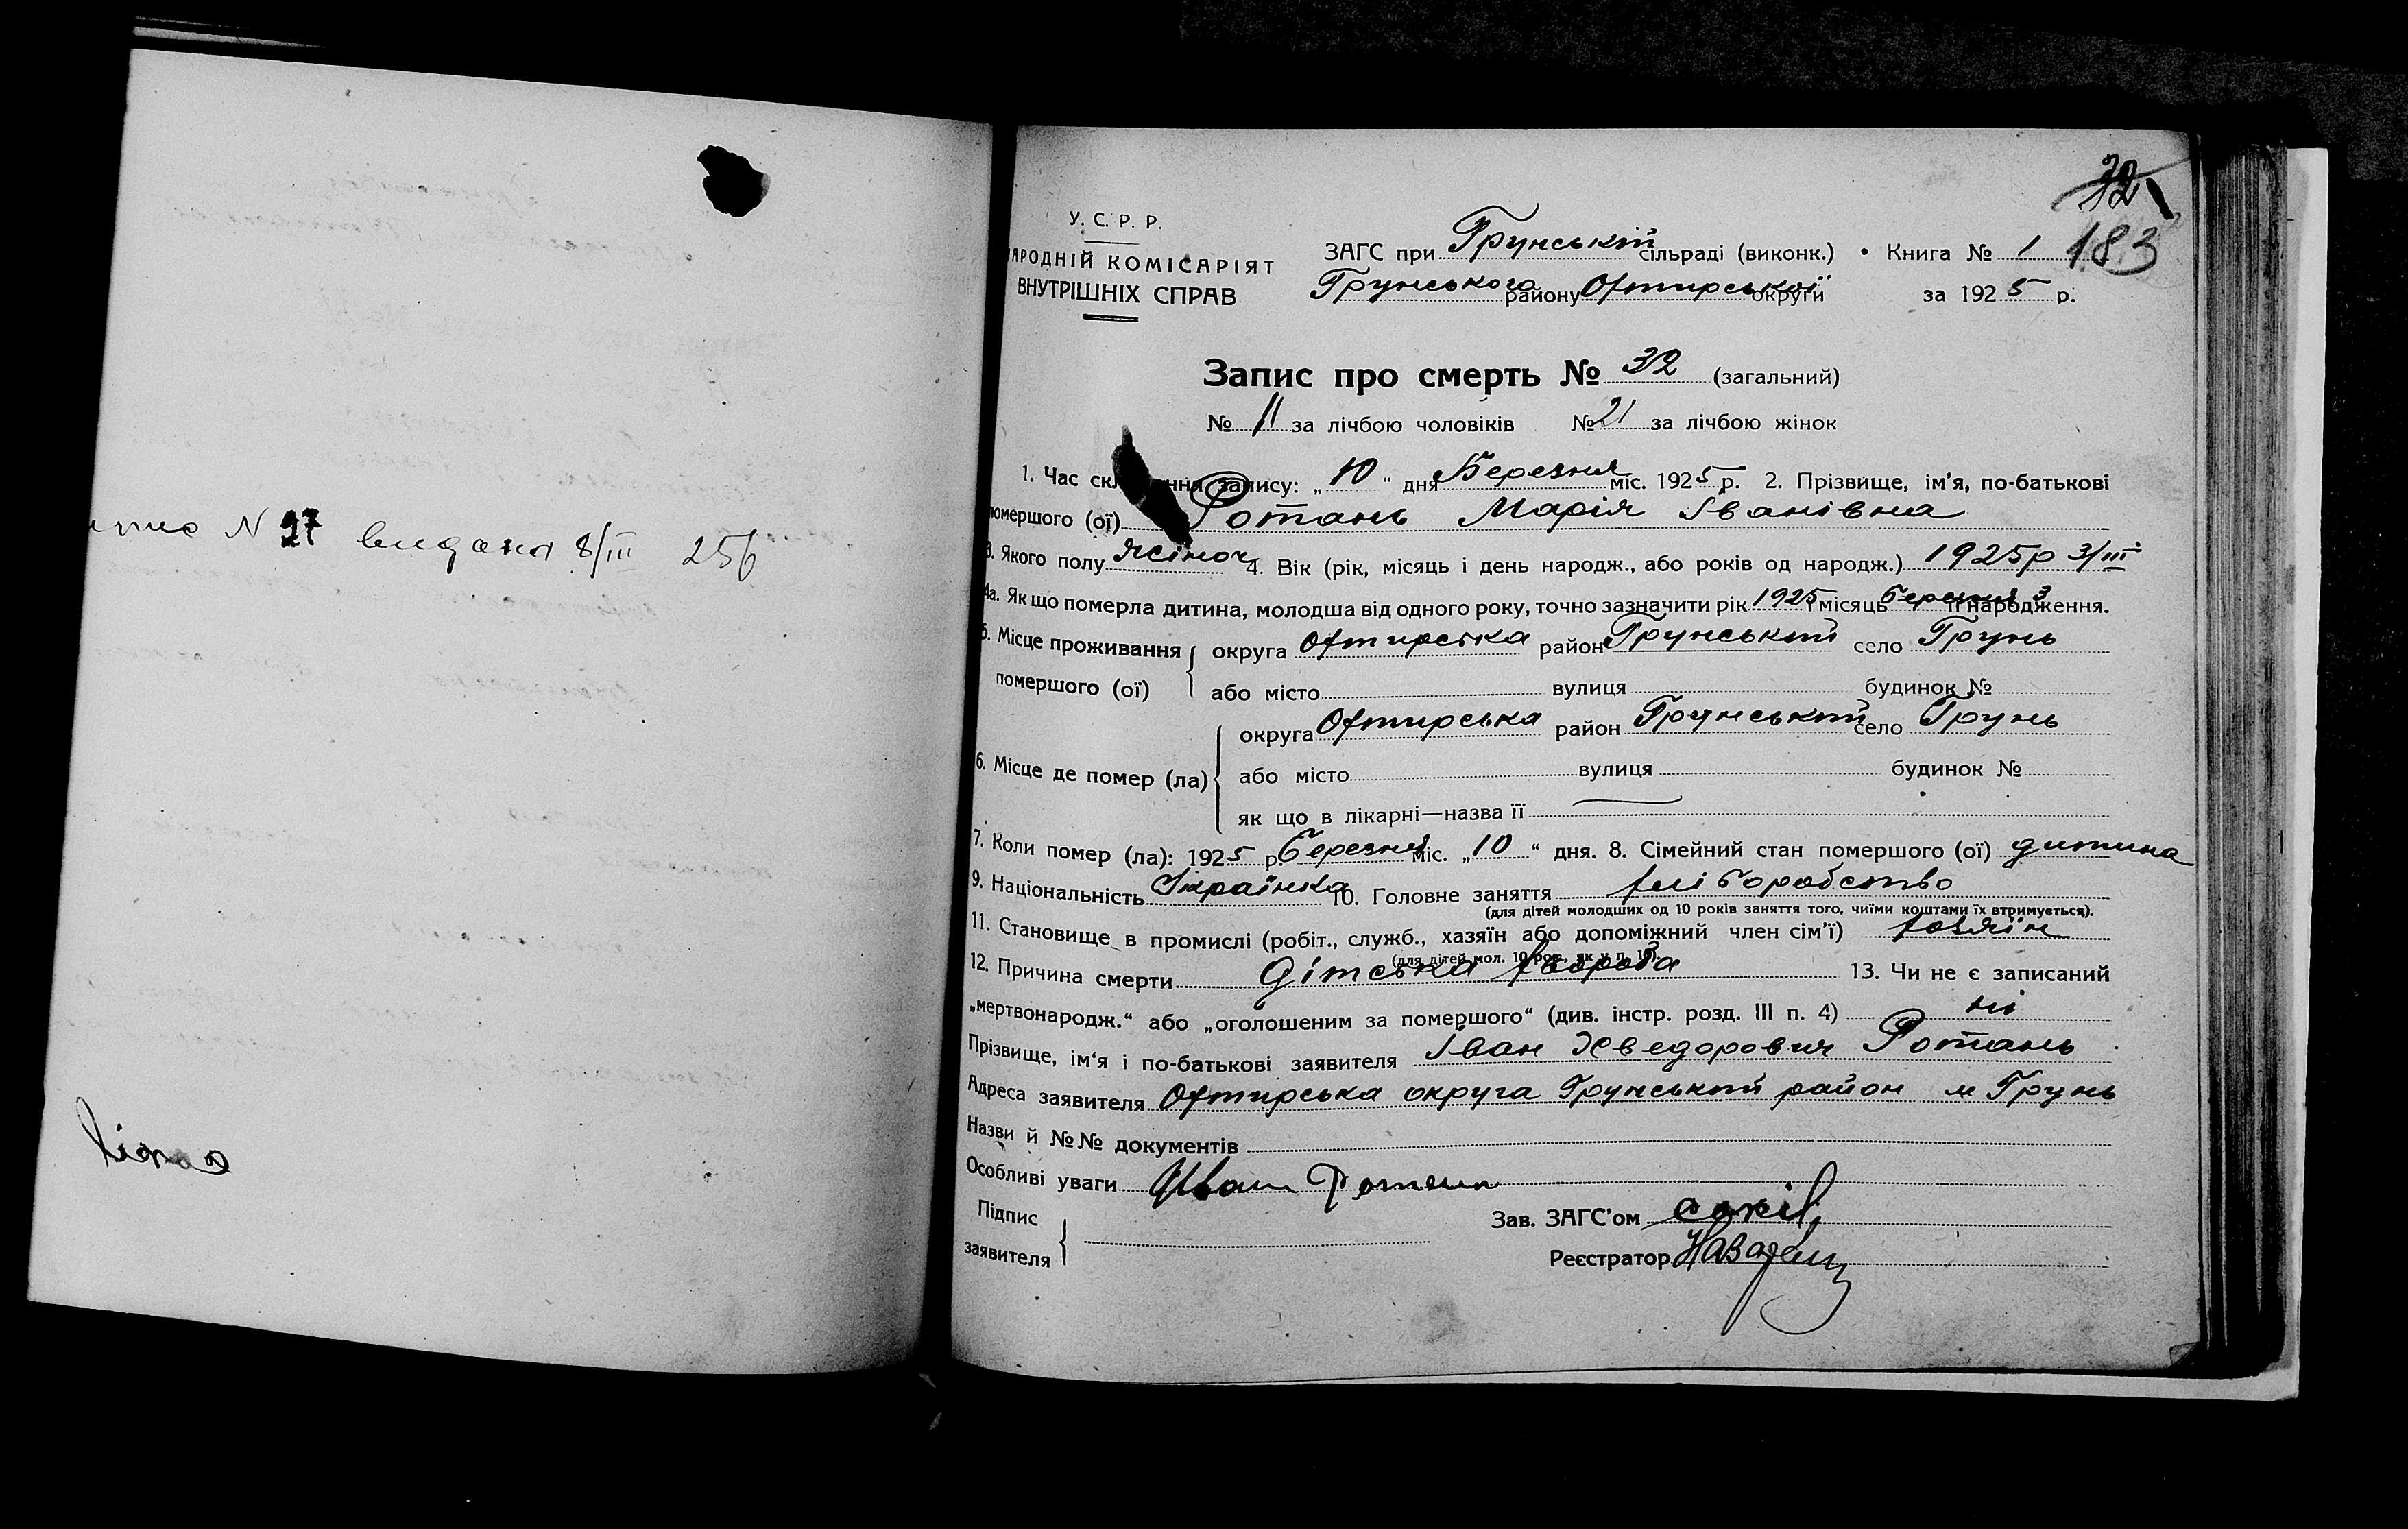 N 27 видана 8/III 25б
32
183
У. С. Р. Р.
НАРОДНІЙ КОМІСАРІЯТ
ВНУТРІШНІХ СПРАВ
ЗАГС при Грунській сільраді (виконк.) • Книга № 1
Грунського району Охтирської округи за 1925 р.
Запис про смерть № 32 (загальний)
№ 11 за лічбою чоловіків № 21 за лічбою жінок
1. Час складення запису: „10“ дня Березня міс. 1925 р. 2. Прізвище, ім'я, по-батькові
помершого (ої) Ротань Марія Іванівна
3. Якого полу жіноч 4. Вік (рік, місяць і день народж., або років од народж.) 1925р 3/III
4а. Як що померла дитина, молодша від одного року, точно зазначити рік 1925 і місяць березня 3 її народження.
5. Місце проживання округа Охтирська район Грунський село Грунь
помершого (ої) або місто вулиця будинок №
округа Охтирська район Грунський село Грунь
6. Місце де помер (ла) або місто вулиця будинок №
як що в лікарні—назва її
7. Коли помер (ла): 1925 р. Березня міс. „10“ дня. 8. Сімейний стан помершого (ої) дитина
9. Національність Українка 10. Головне заняття хліборобство
(для дітей молодших од 10 років заняття того, чиїми коштами їх втримується).
11. Становище в промислі (робіт., служб., хазяїн або допоміжний член сім'ї) хазяїн
(для дітей мол. 10 рок. як у п. 10).
12. Причина смерти дітська хвороба 13. Чи не є записаний
„мертвонародж.“ або „оголошеним за помершого“ (див. інстр. розд. III п. 4) ні
Прізвище, ім'я і по-батькові заявителя Іван Хведорович Ротань
Адреса заявителя Охтирська округа Грунський район м Грунь
Назви й №№ документів
Особливі уваги Иван Ротань
Підпис
заявителя
Зав. ЗАГС'ом Сокіл
Реєстратор